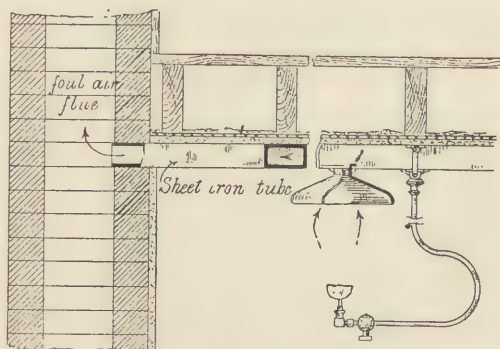 foul air
flue
Sheet iron tube